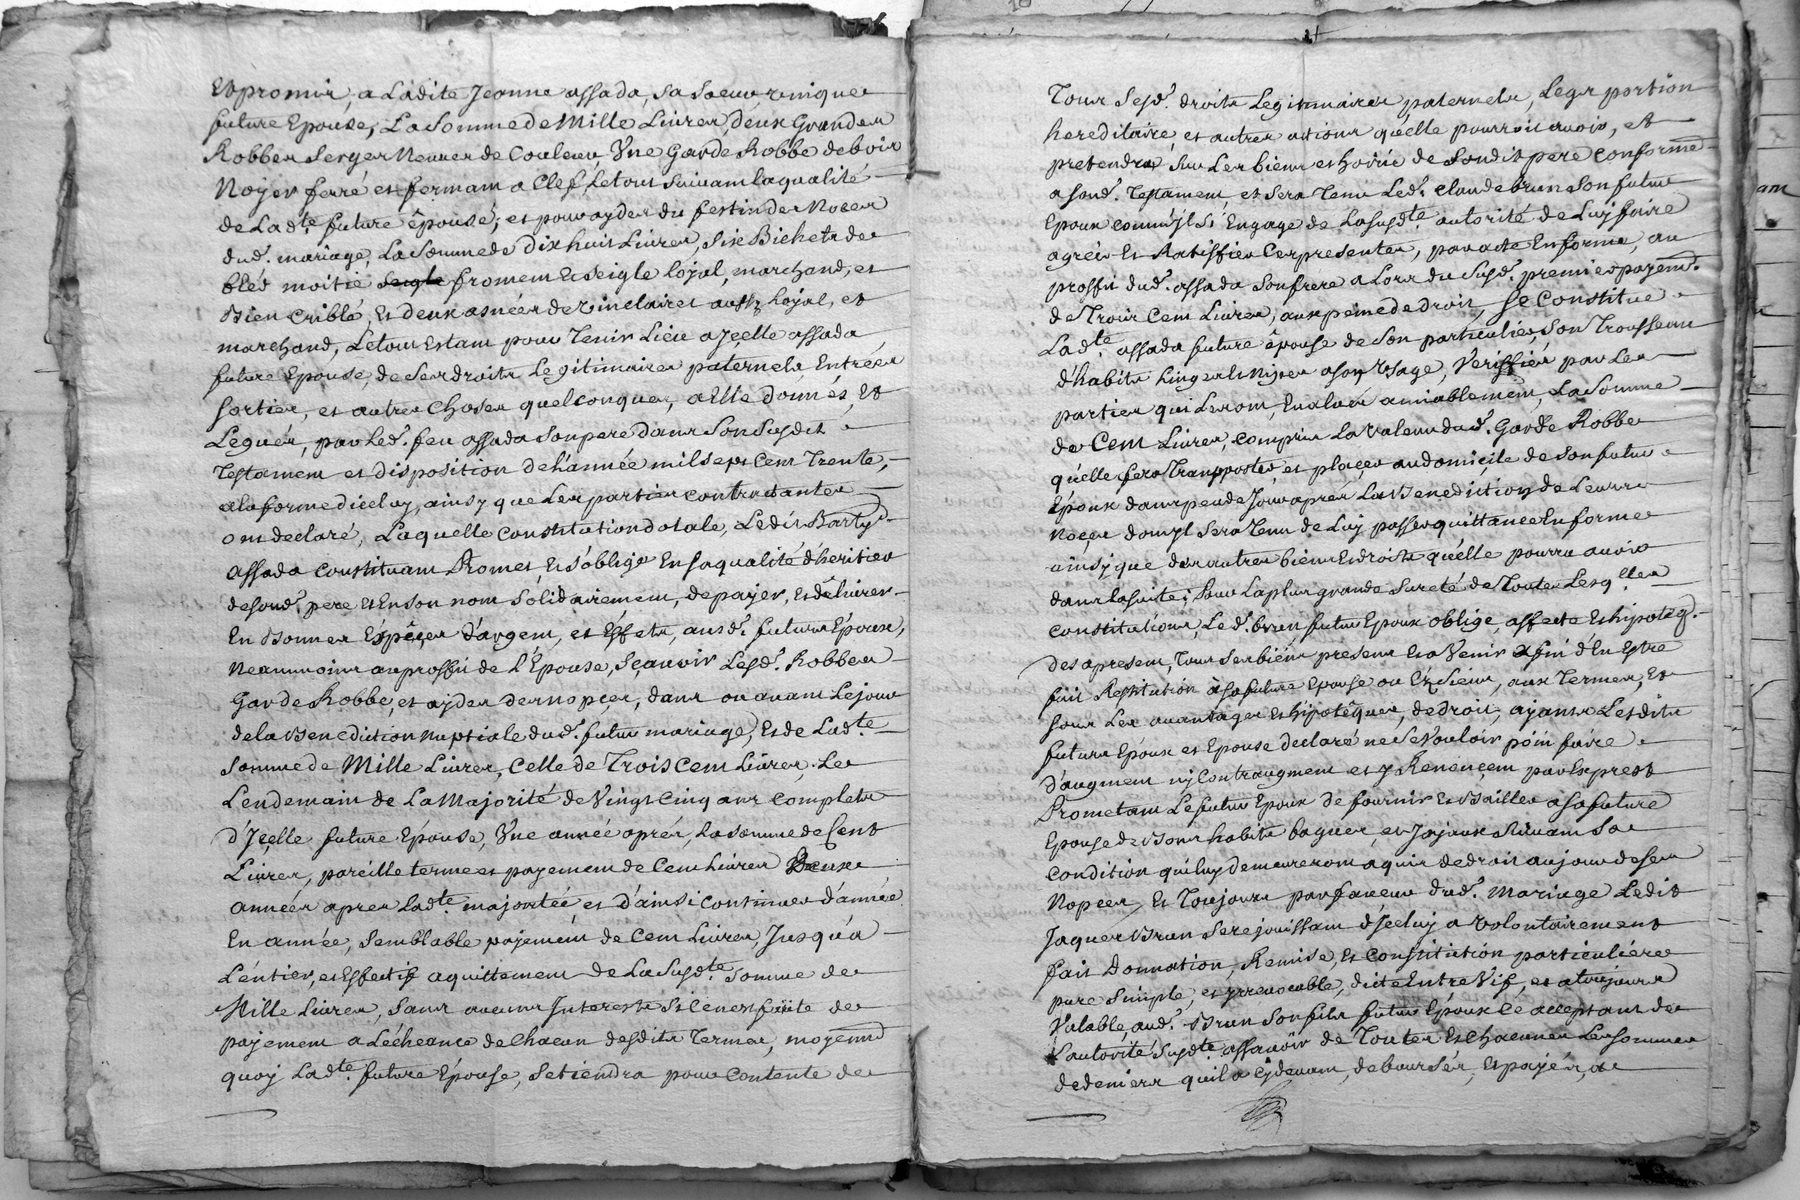 Et promis, a Ladite Jeanne assada, sa soeur, unique
future Epouse, La somme de Mille Livres, deux Grandes
Robbes serges Neuves de Couleur, Vne Garde Robbe de bois
Noyer ferré et fermant a Clef, Le tout suivant la qualité
de Lad.te future épouse; et pour ayder du festin des Noces
dud. mariage, La somme de Dix huit Livres, six Bichets de
bled moitié seigle froment et seigle loyal, marchand, et
Bien criblé, Et deux asnées de vin clairet aussy loyal, et
marchand, Le tout Estant pour Tenir Lieu a Jcelle assada
future Epouse, de ses droits Legitimaires paternels Entrées
sorties, et autres choses quelconques, a Elle donnés, Et
Legués, par Led. feu assada son pere dans son susdit
Testament et disposition de L'année mil sept Cent Trente,
a la forme d'iceluy, ainsy que Les parties contractantes
ont declaré, Laquelle constitution dotale, Ledit Barty
assada constituant Promet, Et s'oblige En sa qualité d'heritier
de sond. pere et En son nom solidairement, de payer, Et délivrer
En Bonnes Espêces d'argent, et Effets, ausd. futurs Epoux,
Neanmoins au proffit de l'Epouse, sçauoir Lesd. Robbes
Garde Robbe, et ayder des nopces, dans ou avant Le jour
de la Benediction nuptiale dud. futur mariage, Et de Lad.te
somme de Mille Livres, Celle de Trois Cent Livres Le
Lendemain de La Majorité de Vingt Cinq ans complets
d'Jcelle future Epouse, Vne année aprés, La somme de Cent
Livres, pareille terme et payement de Cent Livres Deux
années apres Lad.te majoritée et d'ainsi continuer d'année
En année, semblable payement de Cent Livres Jusqu'a
L'entier, et Effectif aquittement de La susd.te somme de
Mille Livres, sans aucuns Jnterests si Ce nest faute de
payement a L'écheance de chacun desdits Termes, moyennt
quoy Lad.te future Epouse, se tiendra pour contente de
Tous sesd. droits Legitimaires paternels, Legs portion
hereditaire, et autres actions quélle pourroit avoir, et
pretendre sur Les biens et hoirie de sondit pere conformé
a sond. Testament, et sera Tenu Led. claude brun son futur
Epoux comm'yl s'Engage de La susd.te autorité de Luy faire
agréer Et Ratiffier Ces presentes, par acte En forme, au
proffit dud. assada son frere a Lors du susd. premier payemt.
de Trois Cent Livres, aux peine de droit, se Constitue
Lad.te assada future épouse de son particulier, son Trousseau
d'habits Linges et Nipes a son Vsage, Veriffiés par Les
parties qui Les ont, Evalués amiablement, La somme
de Cent Livres, compris La valeur dud. Garde Robbe
qu'elle fera Transporter, et placer au domicile de son futur
Epoux dans peu de Jours aprés La Benediction de Leurs
noçes dont yl sera Tenu de Luy passer quittance En forme
ainsy que des autres biens Et droits qu'élle pourra avoir
dans la suite; Pour La plus grande sureté de Toutes Lesq.lles
constitutions, Led. brun futur Epoux oblige, affecte Et hipoteq.
des apresent, Tous ses biens presens Et a Venir afin d'En Estre
fait Restitution a sa future Epouse ou Es siens, aux Termes, Et
sous Les avantages Et hipotêques, de droit, ayants Lesdits
futurs Epoux et Epouse declaré ne se vouloir point faire
d'augment ny Contraugment et y Renonçent par Exprest
Prometant Le futur Epoux de fournir Et Bailler a sa future
Epouse de Bons habits bagues, et Joyaux suivant sa
condition qui luy demeureront aquis de droit au jour de ses
Nopces, Et Toujours par faveur dud. Mariage Ledit
Jaques Brun se rejouissant d'Jceluy a volontairement
fait Donnation, Remise, Et Constitution particuliére
pure simple, et yrrevocable, dicte Entre Vif, et atoujours
Valable aud. Brun son fils futur Epoux Ce acceptant de
L'autorité susd.te assavoir de Toutes Et chacunes Les sommes
de deniers quil a cydevant, deboursés, Et payés, a